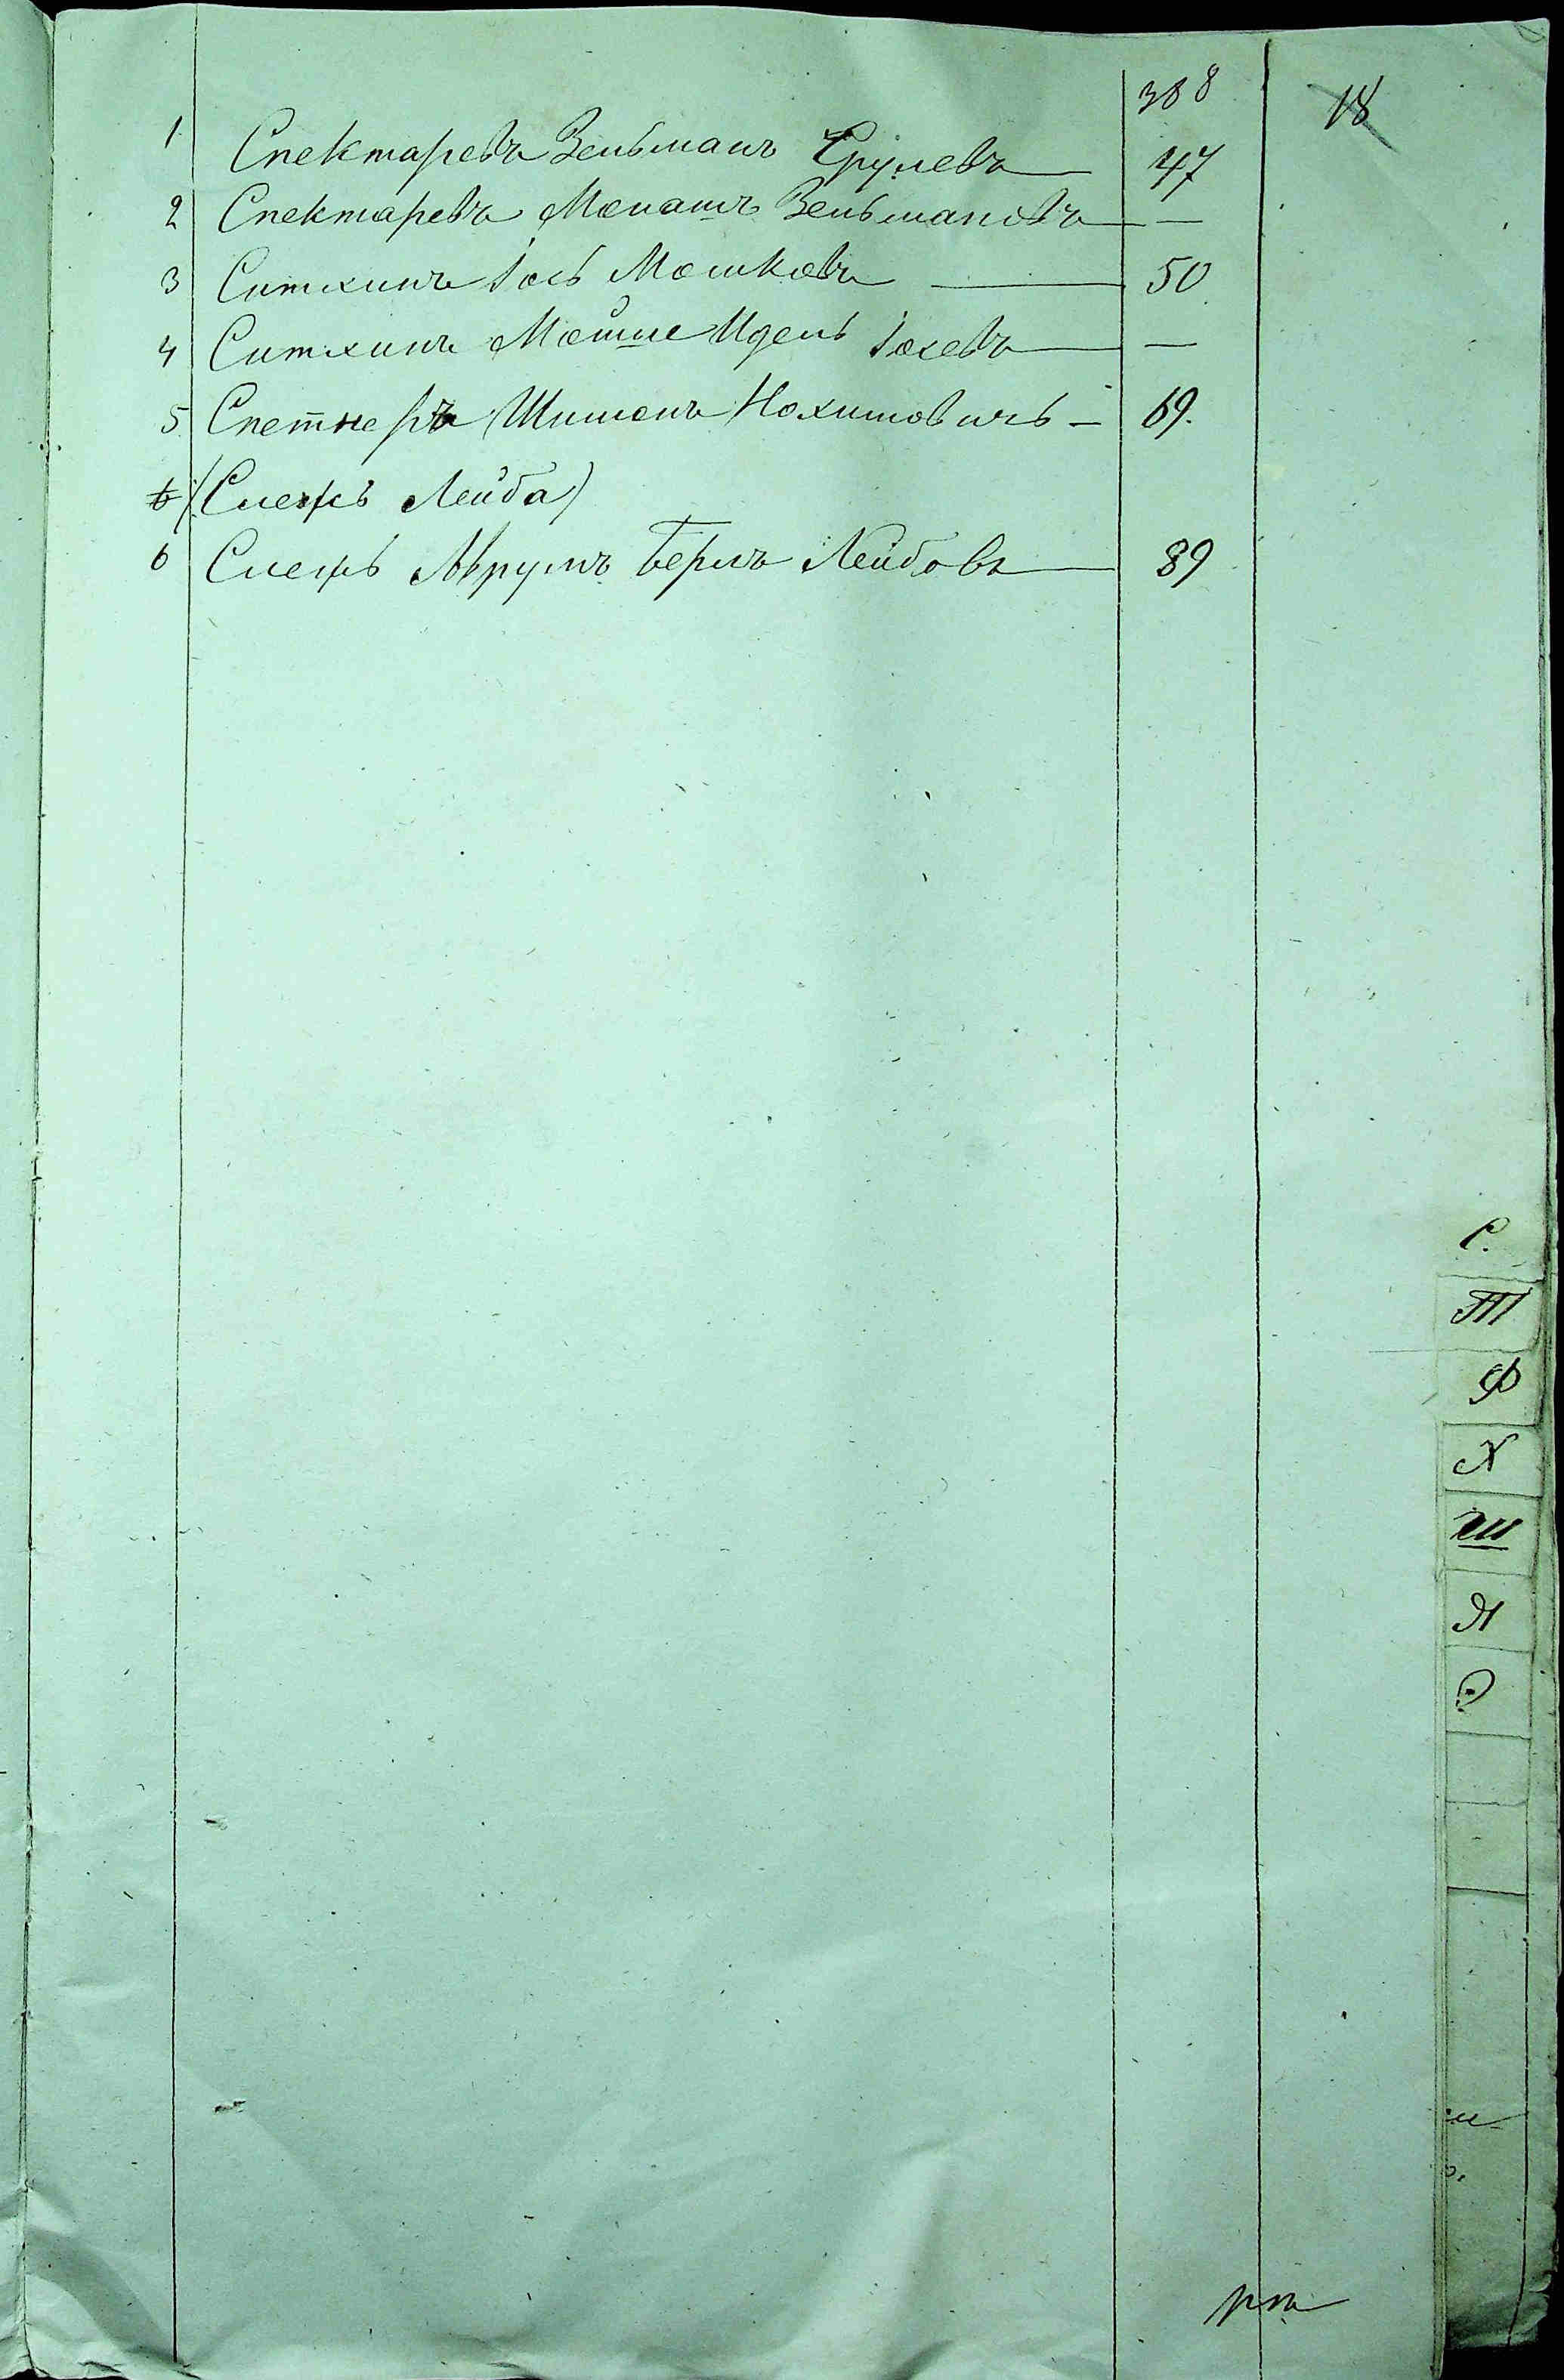 388 18
1 Спектаревъ Зельманъ Срулевъ 47
2 Спектаревъ Монашъ Зельмановъ —
3 Ситкинъ Іось Мошковъ 50
4 Ситкинъ Мошше Идель Іосевъ —
5 Спетнеръ Шимонъ Нохимовичъ — 69.
6 (Слеръ Лейба)
6 Слеръ Аврумъ Берлъ Лейбовъ 89
С.
Т
Ф
Х
Ш
Я
Э